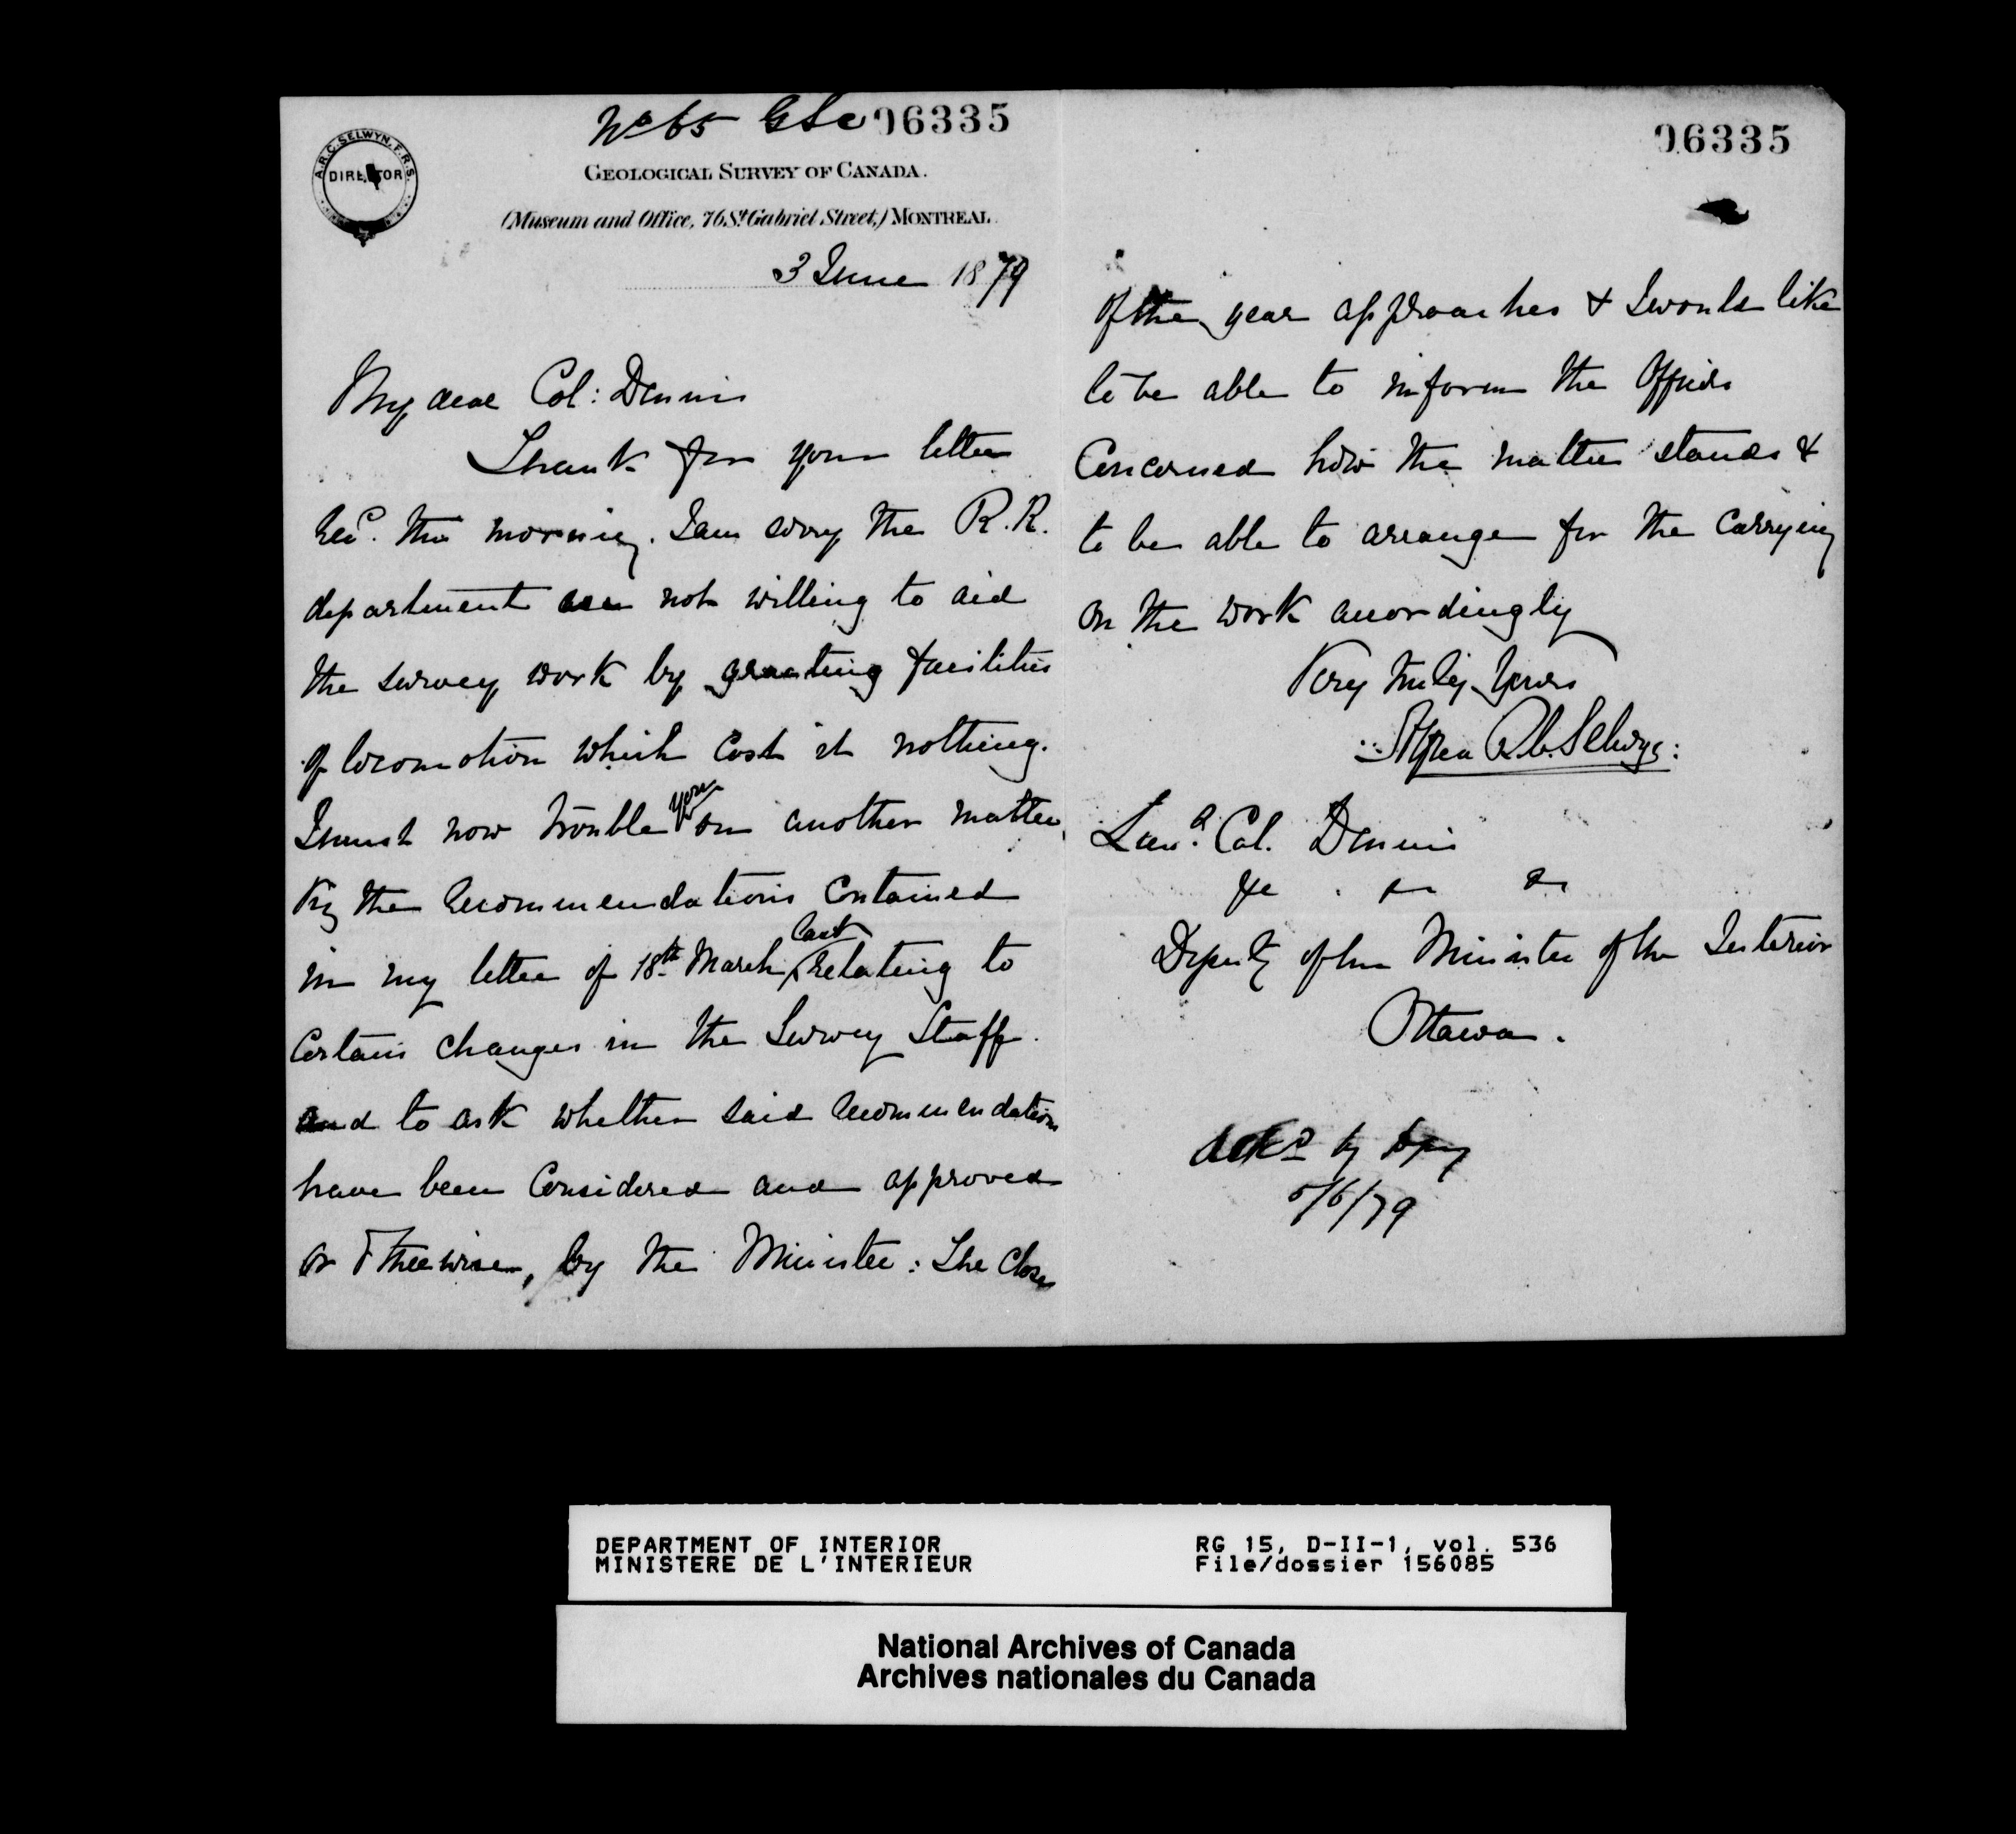 No 65 GSC 06335
A.R.C. SELWYN. F.R.S.
DIRECTOR
GEOLOGICAL SURVEY OF CANADA.
(Museum and Office, 76 St Gabriel Street,) MONTREAL.
3 June 1879
My dear Col: Dennis
Thank for your letter
recd. this morning. I am sorry the R.R.
department are not willing to aid
the survey work by granting facilities
of locomotion which cost it nothing.
I must now trouble you on another matter,
viz the recommendations contained
in my letter of 18th March last relating to
certain changes in the Survey Staff.
and to ask whether said recommendations
have been considered and approved
or otherwise, by the Minister: The close
06335
of the year approaches & I would like
to be able to inform the Officers
concerned how the matter stands &
to be able to arrange for the carrying
on the work accordingly
Very truly Yours
Alfred R.C. Selwyn:
Col. Dennis
&c
Deputy of the Minister of the Interior
Ottawa.
Ackd by
5/6/79
DEPARTMENT OF INTERIOR RG 15, D-II-1, vol. 536
MINISTERE DE L'INTERIEUR File/dossier 156085
National Archives of Canada
Archives nationales du Canada